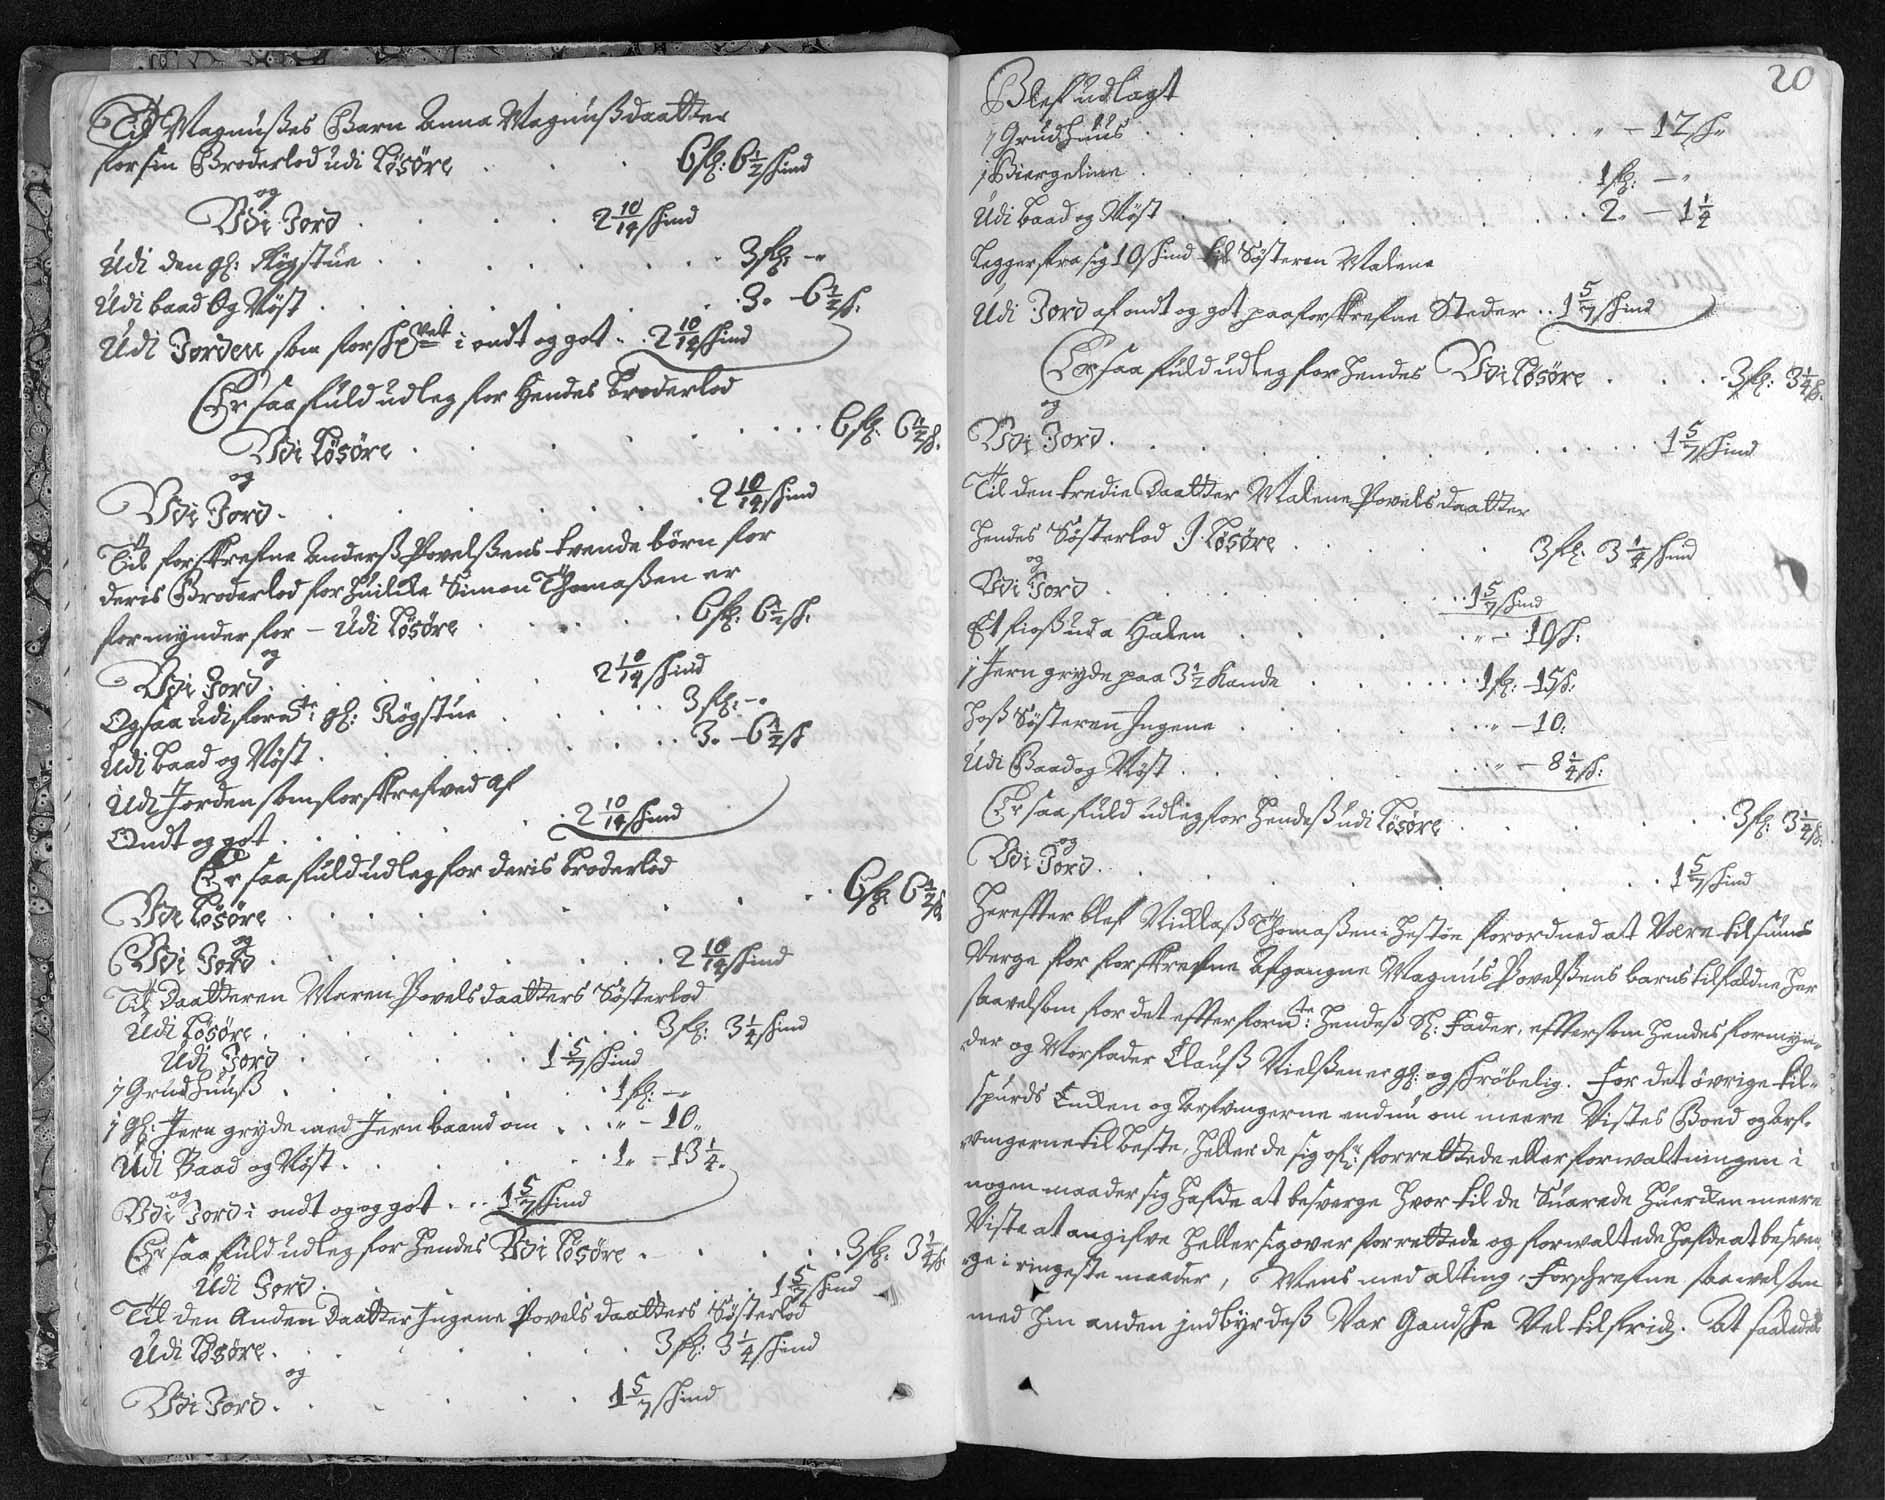 Til Magnußes Barn Anna Magnußdaatter
for sin Broderlod udi Løsøre . . . 6 fl: 6 1/2 skind
og
Udi Jord . . . . 2 10/14 skind
Udi den gl: Røgstue . . . . . . . 3 fl: -"
Udi baad Og Nøst . . . . . . . 3. - 6 1/2 s.
Udi Jorden som forsk i ondt og got . . 2 10/14 skind
Er saa fuld udleg for Hendes Broderlod
Udi Løsøre . . . . . . . 6 fl: 6 1/2 s.
og
Udi Jord . . . . . . . 2 10/14 skind
Til forskrefne Anderß Povelßens tvende børn for
deris Broderlod for huilcke Simon Thomaßen er
formynder for - Udi Løsøre . . . . . 6 fl: 6 1/2 s.
og
Udi Jord . . . . . . 2 10/14 skind
Ogsaa udi fornte: gl: Røgstue . . . . . 3 fl: -"
Udi baad og Nøst . . . . . . . 3. - 6 1/2 s
Udi Jorden som forskrefved af
Ondt og got . . . . . . . 2 10/14 skind
Er saa fuld udleg for deris broderlod
Udi Løsøre . . . . . . . . . 6 fl: 6 1/2 s
og
Udi Jord . . . . . . . . 2 10/14 skind
Til Daatteren Maren Povelsdaatters Søsterlod
Udi Løsøre . . . . . . . . 3 fl: 3 1/4 skind
Udi Jord . . . . . . 1 5/7 skind
1 Grudhuuß . . . . . . . 1 fl: -"
1 gl: Jern gryde med Jern baand om . . . " - 10"
Udi Baad og Nøst . . . . . . . 1. - 13 1/4.
og
Udi Jord i ondt og og got . . . 1 5/7 skind
Er saa fuld udleg for Hendes Udi Løsøre . . . . . 3 fl: 3 1/4 s.
Udi Jord . . . . . . . . 1 5/7 skind
Til den Anden Daatter Ingene Povelsdaatters Søsterlod
Udi Løsøre . . . . . . . . 3 fl: 3 1/4 skind
og
Udi Jord . . . . . . 1 5/7 skind
20
Blef udlagt
1 Grudhuus . . . . . . . . . " - 12 s"
1 Biergeline . . . . . . . . . 1 fl: - "
Udi baad og Nøst . . . . . . . . . 2. - 1 1/4
Legger fra sig 10 skind til Søsteren Malene
Udi Jord af ondt og got paa forskrefne Steder . . 1 5/7 skind
Er saa fuld udleg for Hendes Udi Løsøre . . . . 3 fl: 3 1/4 s.
og
Udi Jord . . . . . . . . . . . 1 5/7 skind
Til den tredie Daatter Malene Povelsdaatter
Hendes Søsterlod I Løsøre . . . . . 3 fl: 3 1/4 skind
og
Udi Jord . . . . . . . . 1 5/7 skind
Et fioß ud a Halen . . . . . . " - 10 s:
1 Jern gryde paa 3 1/2 Kande . . . . . . 1 fl: - 15 s:
Hoß Søsteren Ingene . . . . . . " - 10.
Udi Baad og Nøst . . . . . . . " - 8 1/4 s:
Er saa fuld udleg for Hendeß udi Løsøre . . . . . . 3 fl: 3 1/4 s.
og
Udi Jord . . . . . . . . . . . 1 5/7 skind
Herefter blef Nicklaß Thomaßen i Hestøe forordned at Være tilsiuns
Verge for forskrefne Afgangne Magnus Povelßens barns tilfaldne her
saavelsom for det effter fornte: Hendeß Sl: Fader, effter som Hendes formyn-
der og Morfader Clauß Nielßen er gl: og skrøbelig. For det øvrige til-
spurds Encken og Arfvingerne endnu om meere Vistes Boed og Arf-
vingerne til beste, Heller de sig ofr: forrettede eller forwaltningen i
nogen maader sig Hafde at besverge Hvor til de Suarede Huercken meere
Viste at angifve Heller sig over forrettede og forwaltede Hafde at besver-
ge i ringeste maader, Mens med alting, Forskrefne saavelsom
med Hin anden indbyrdeß Var Gandske Vel tilfrids. At saaledes